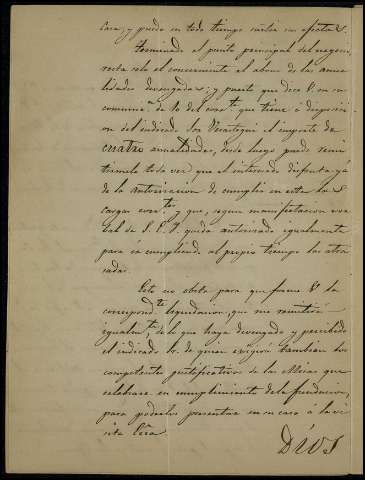 casa; y pueda en todo tiempo surtir sus efectos.
Terminado el punto principal del negocio
resta solo el concerniente al abono de las anua-
lidades devengadas; y puesto que dice V. en su
comunicn. de 10 del corrte. que tiene á disposici-
on del indicado Sor. el importe de
cuatro anualidades, desde luego puede remi-
tirmelo toda vez que el interesado disfruta ya
de la autorizacion de cumplir en esta las
cargas corrtes. y que, segun manifestacion ver-
bal de S. E. I. queda autorizado igualmente
para ir cumpliendo al propio tiempo las atra-
sadas.
Esto no obsta para que forme V. la
correspondte. liquidacion, que me remitirá
igualmte. de lo que haya devengado y percibido
el indicado Sr. de quien exigirá tambien los
competentes justificativos de las Misas que
celebrase en cumplimiento de la fundacion,
para poderlos presentar en su caso á la vi-
sita Ecca.
Dios